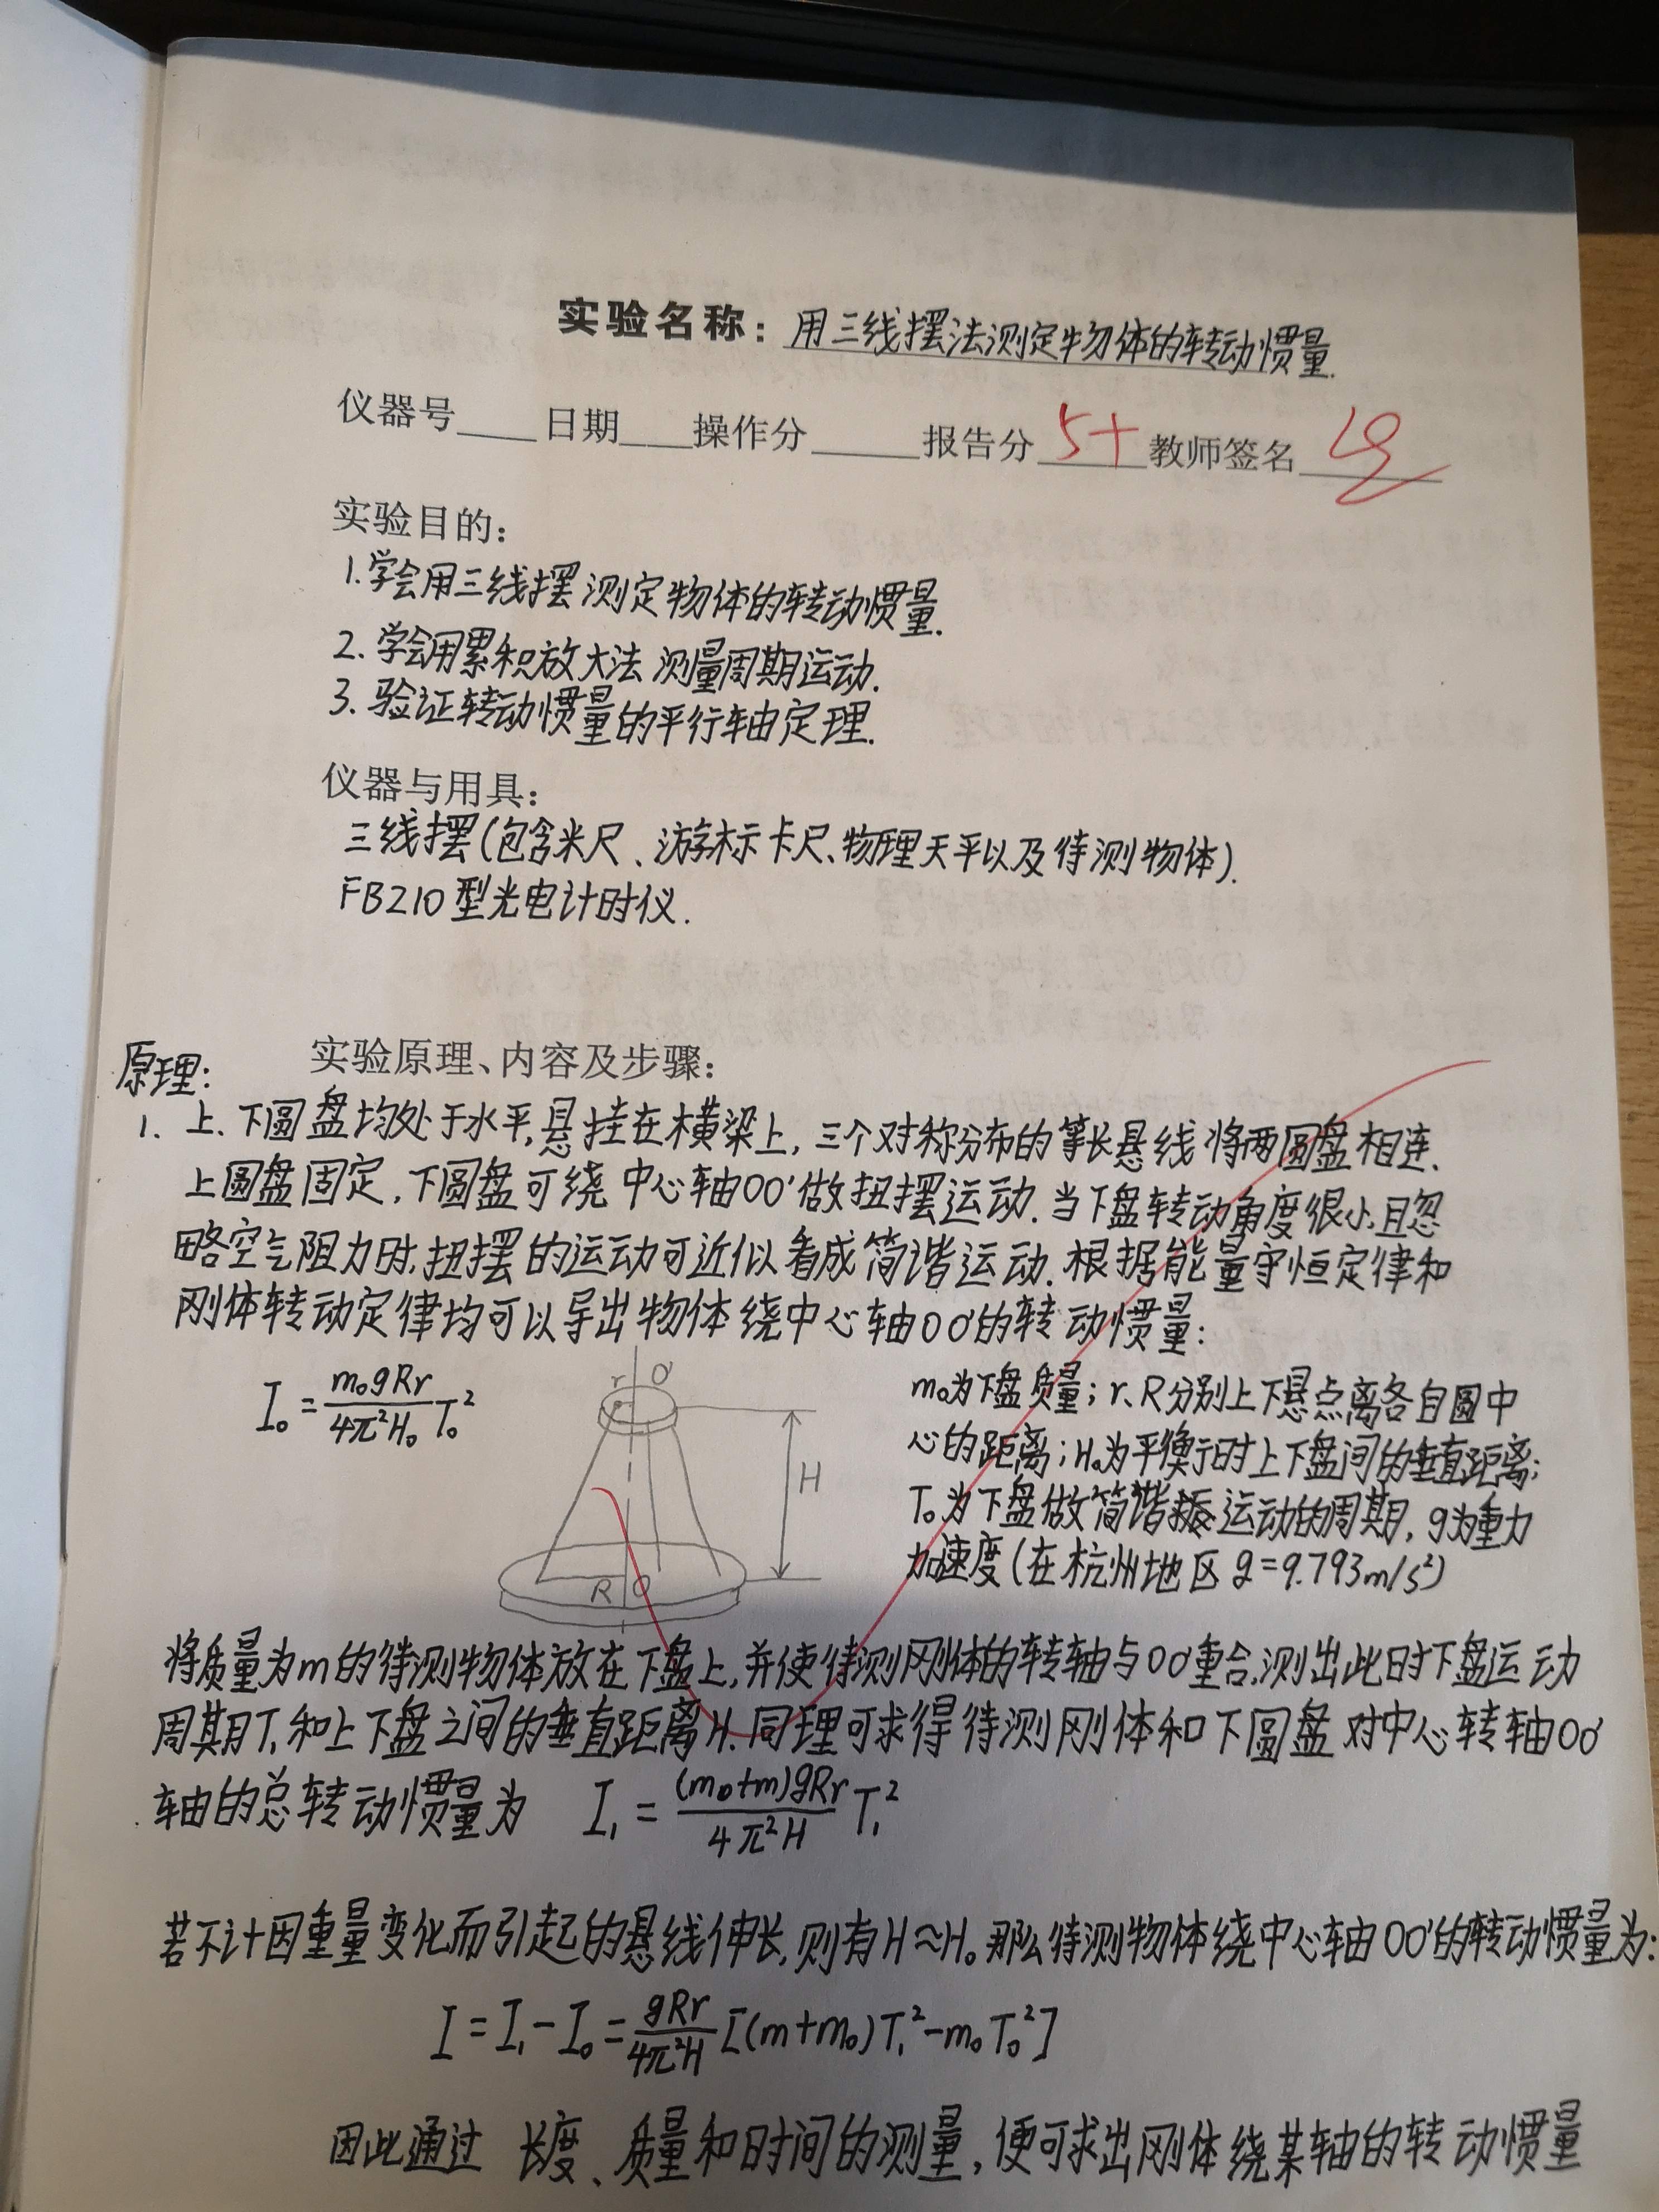 实验名称：用三线摆法测定物体的转动惯量.
仪器号____日期____操作分____报告分 5+ 教师签名
实验目的：
1.学会用三线摆测定物体的转动惯量.
2.学会用累积放大法测量周期运动.
3.验证转动惯量的平行轴定理.
仪器与用具：
三线摆(包含米尺、游标卡尺、物理天平以及待测物体).
FB210型光电计时仪.
原理： 实验原理、内容及步骤：
1. 上、下圆盘均处于水平,悬挂在横梁上,三个对称分布的等长悬线将两圆盘相连.
上圆盘固定,下圆盘可绕中心轴OO'做扭摆运动.当下盘转动角度很小,且忽
略空气阻力时,扭摆的运动可近似看成简谐运动.根据能量守恒定律和
刚体转动定律均可以导出物体绕中心轴OO'的转动惯量:
I₀ = m₀gRr/4π²H₀ T₀²
r O'
H
R O
m₀为下盘质量；r、R分别上下悬点离各自圆中
心的距离；H₀为平衡于时上下盘间的垂直距离；
T₀为下盘做简谐运动的周期, g为重力
加速度(在杭州地区 g=9.793m/s²)
将质量为m的待测物体放在下盘上,并使待测刚体的转轴与OO'重合,测出此时下盘运动
周期T₁和上下盘之间的垂直距离H.同理可求得待测刚体和下圆盘对中心转轴OO'
轴的总转动惯量为 I₁ = (m₀+m)gRr/4π²H T₁²
若不计因重量变化而引起的悬线伸长,则有H≈H₀那么待测物体绕中心轴OO'的转动惯量为:
I = I₁ - I₀ = gRr/4π²H [(m+m₀)T₁² - m₀T₀²]
因此通过 长度、质量和时间的测量,便可求出刚体绕某轴的转动惯量